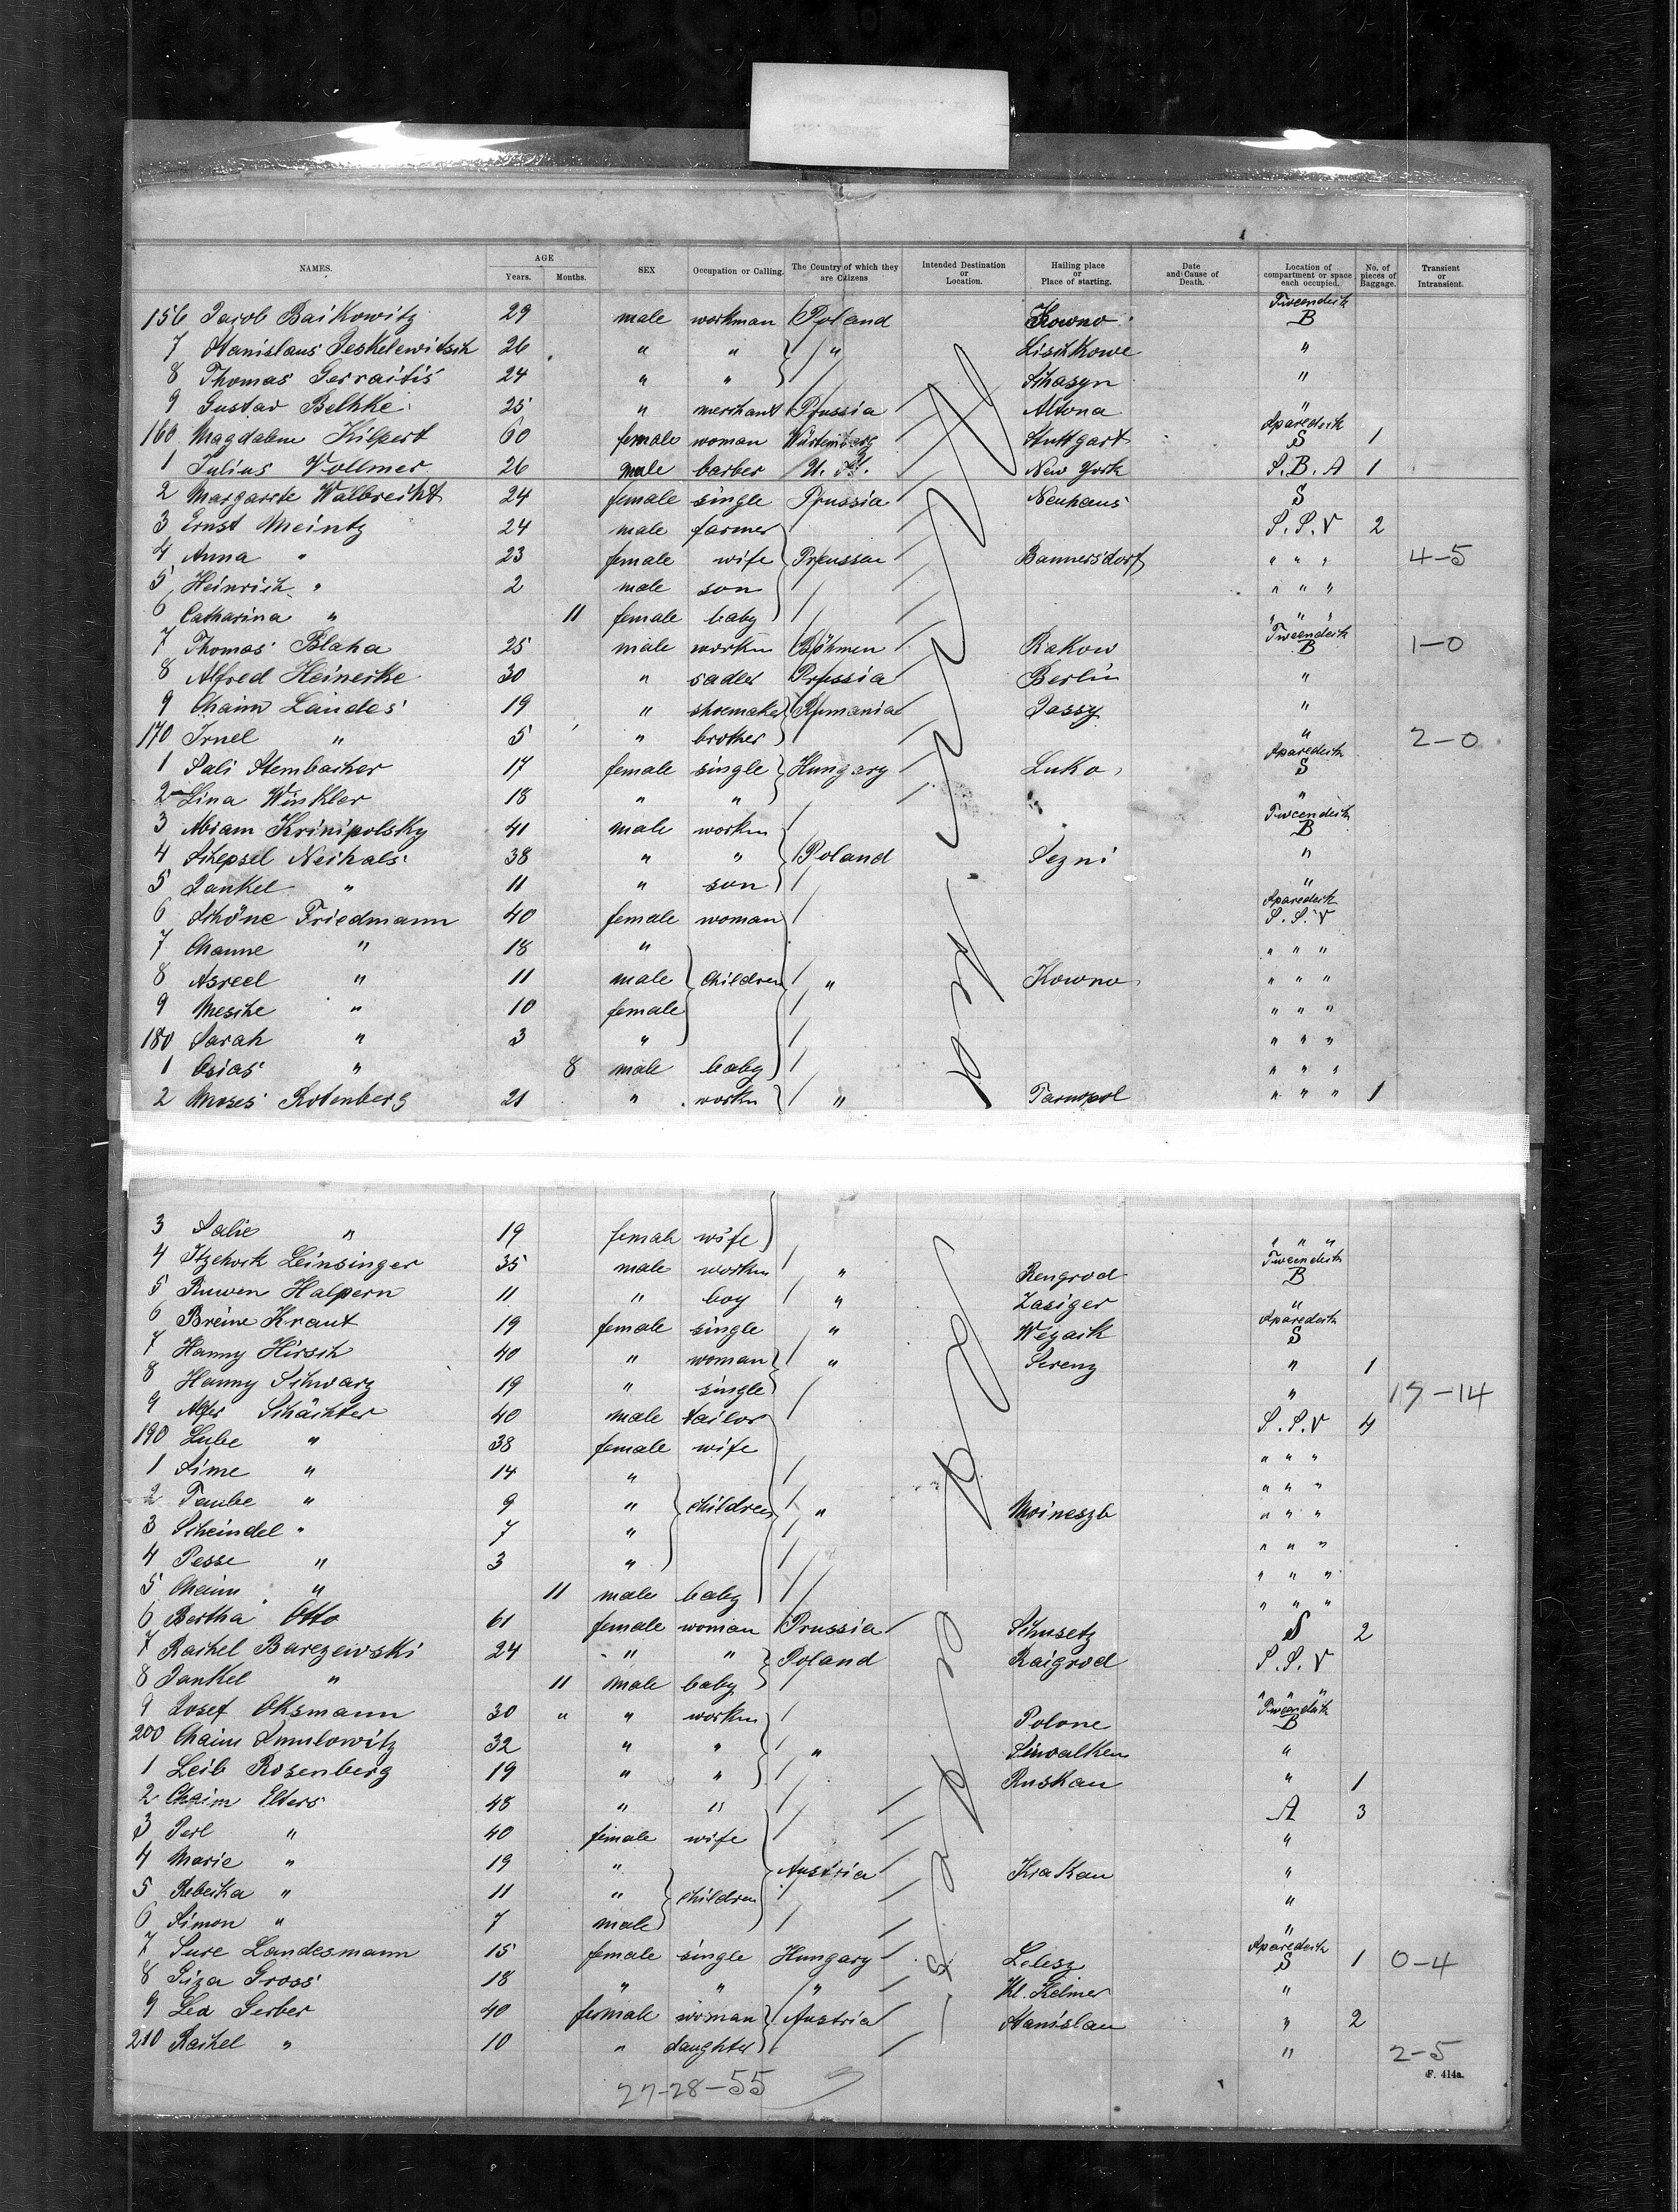 NAMES. AGE Years. Months. SEX Occupation or Calling. The Country of which they are Citizens Intended Destination or Location. Hailing place or Place of starting. Date and Cause of Death. Location of compartment or space each occupied. No. of pieces of Baggage. Transient or Intransient.
156 Jacob Baikowitz 29 male workman Poland Kowno Tweendeck B
7 Stanislaus Peskelewitsch 26 " " " Lischkowe "
8 Thomas Gerraitis 24 " " Schasyn "
9 Gustav Belhke 25 " merchant Prussia Altona "
160 Magdalene Kilpert 60 female woman Würtemberg Stuttgart Aparedeck S 1
1 Julius Vollmer 26 male barber U. St. New York S. B. A 1
2 Margarete Walbrecht 24 female single Prussia Neuhaus S
3 Ernst Meintz 24 male farmer S. S. V 2
4 Anna " 23 female wife Preussen Bannersdorf " " " 4-5
5 Heinrich " 2 male son " " "
6 Catharina " 11 female baby " " "
7 Thomas Blaha 25 male workm Böhmen Rakow Tweendeck B 1-0
8 Alfred Heinecke 30 " sadler Prussia Berlin "
9 Chaim Landes 19 " shoemaker Rumania Jassy "
170 Isruel " 5 " brother " 2-0
1 Sali Sternbacher 17 female single Hungary Luko Aparedeck S
2 Lina Winkler 18 " " "
3 Abiam Krinipolsky 41 male workm Tweendeck B
4 Schepsel Neihals 38 " " Poland Sezni "
5 Jankel " 11 " son "
6 Schöne Friedmann 40 female woman Aparedeck S. S. V
7 Channe " 18 " " " "
8 Asreel " 11 male Children " Kowno " " "
9 Mesche " 10 female " " "
180 Sarah " 3 " " " "
1 Osias " 8 male baby " " "
2 Moses Rotenberg 21 " workm " Tarnopol " " " 1
3 Salie " 19 female wife " " "
4 Itzekock Leinsinger 35 male workm " Rengrod Tweendeck B
5 Ruwen Halpern 11 " boy " Zasiger "
6 Breine Kraut 19 female single " Wezaik Aparedeck S
7 Hanny Hirsch 40 " woman " Serenz " 1
8 Hanny Schwarz 19 " single " 17-14
9 Alter Schächter 40 male tailor S. S. V 4
190 Lube " 38 female wife " " "
1 Sime " 14 " " " "
2 Taube " 9 " children " Moineszb " " "
3 Scheindel " 7 " " " "
4 Pesse " 3 " " " "
5 Chaim " 11 male baby " " "
6 Bertha Otto 61 female woman Prussia Schusetz S 2
7 Rachel Barezewski 24 " " Poland Raigrod S. S. V
8 Jankel " 11 male baby " " "
9 Josef Oksmann 30 " " workm Polone Tweendeck B
200 Chaim 32 " " " Suwalken "
1 Leib Rosenberg 19 " " Ruskau " 1
2 Chaim Elters 48 " " A 3
3 Perl " 40 female wife "
4 Marie " 19 " Austria Krakau "
5 Rebecka " 11 " children "
6 Simon " 7 male "
7 Sure Landesmann 15 female single Hungary Lelesz Aparedeck S 1 0-4
8 Giza Gross 18 " " " Kl. Kelmer "
9 Lea Gerber 40 female woman Austria Stanislau " 2
210 Rachel " 10 " daughter " 2-5
27-28-55
F. 414a.